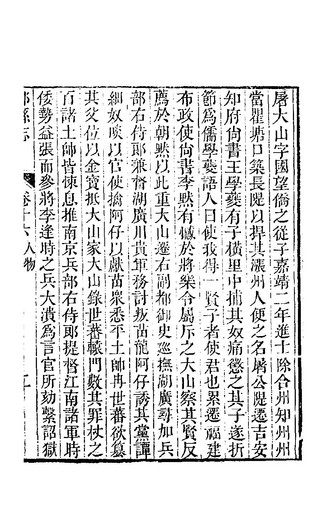 屠大山字國望僑之從子嘉靖二年進士除合州知州州
當瞿塘口築長隄以捍其漲州人便之名屠公隄遷吉安
知府尚書王學夔有子橫里中捕其奴痛懲之其子遂折
節為儒學夔語人曰使我得一賢子者使君也累遷福建
布政使尚書李默有憾於將樂令屬斥之大山察其賢反
薦於朝默以此重大山遷右副都御史巡撫湖廣尋加兵
部右侍郎兼督湖廣川貴軍務討叛苗龍阿仔誘其黨譚
細奴啖以官使擒阿仔以獻苗眾悉平土師冉世蕃欲篡
其父位以金寶抵大山家大山錄世蕃轅門數其罪杖之
百諸土師皆悚息推南京兵部右侍郎提督江南諸軍時
倭勢益張而參將李逢時之兵大潰為言官所劾繫詔獄
卷十六 人物